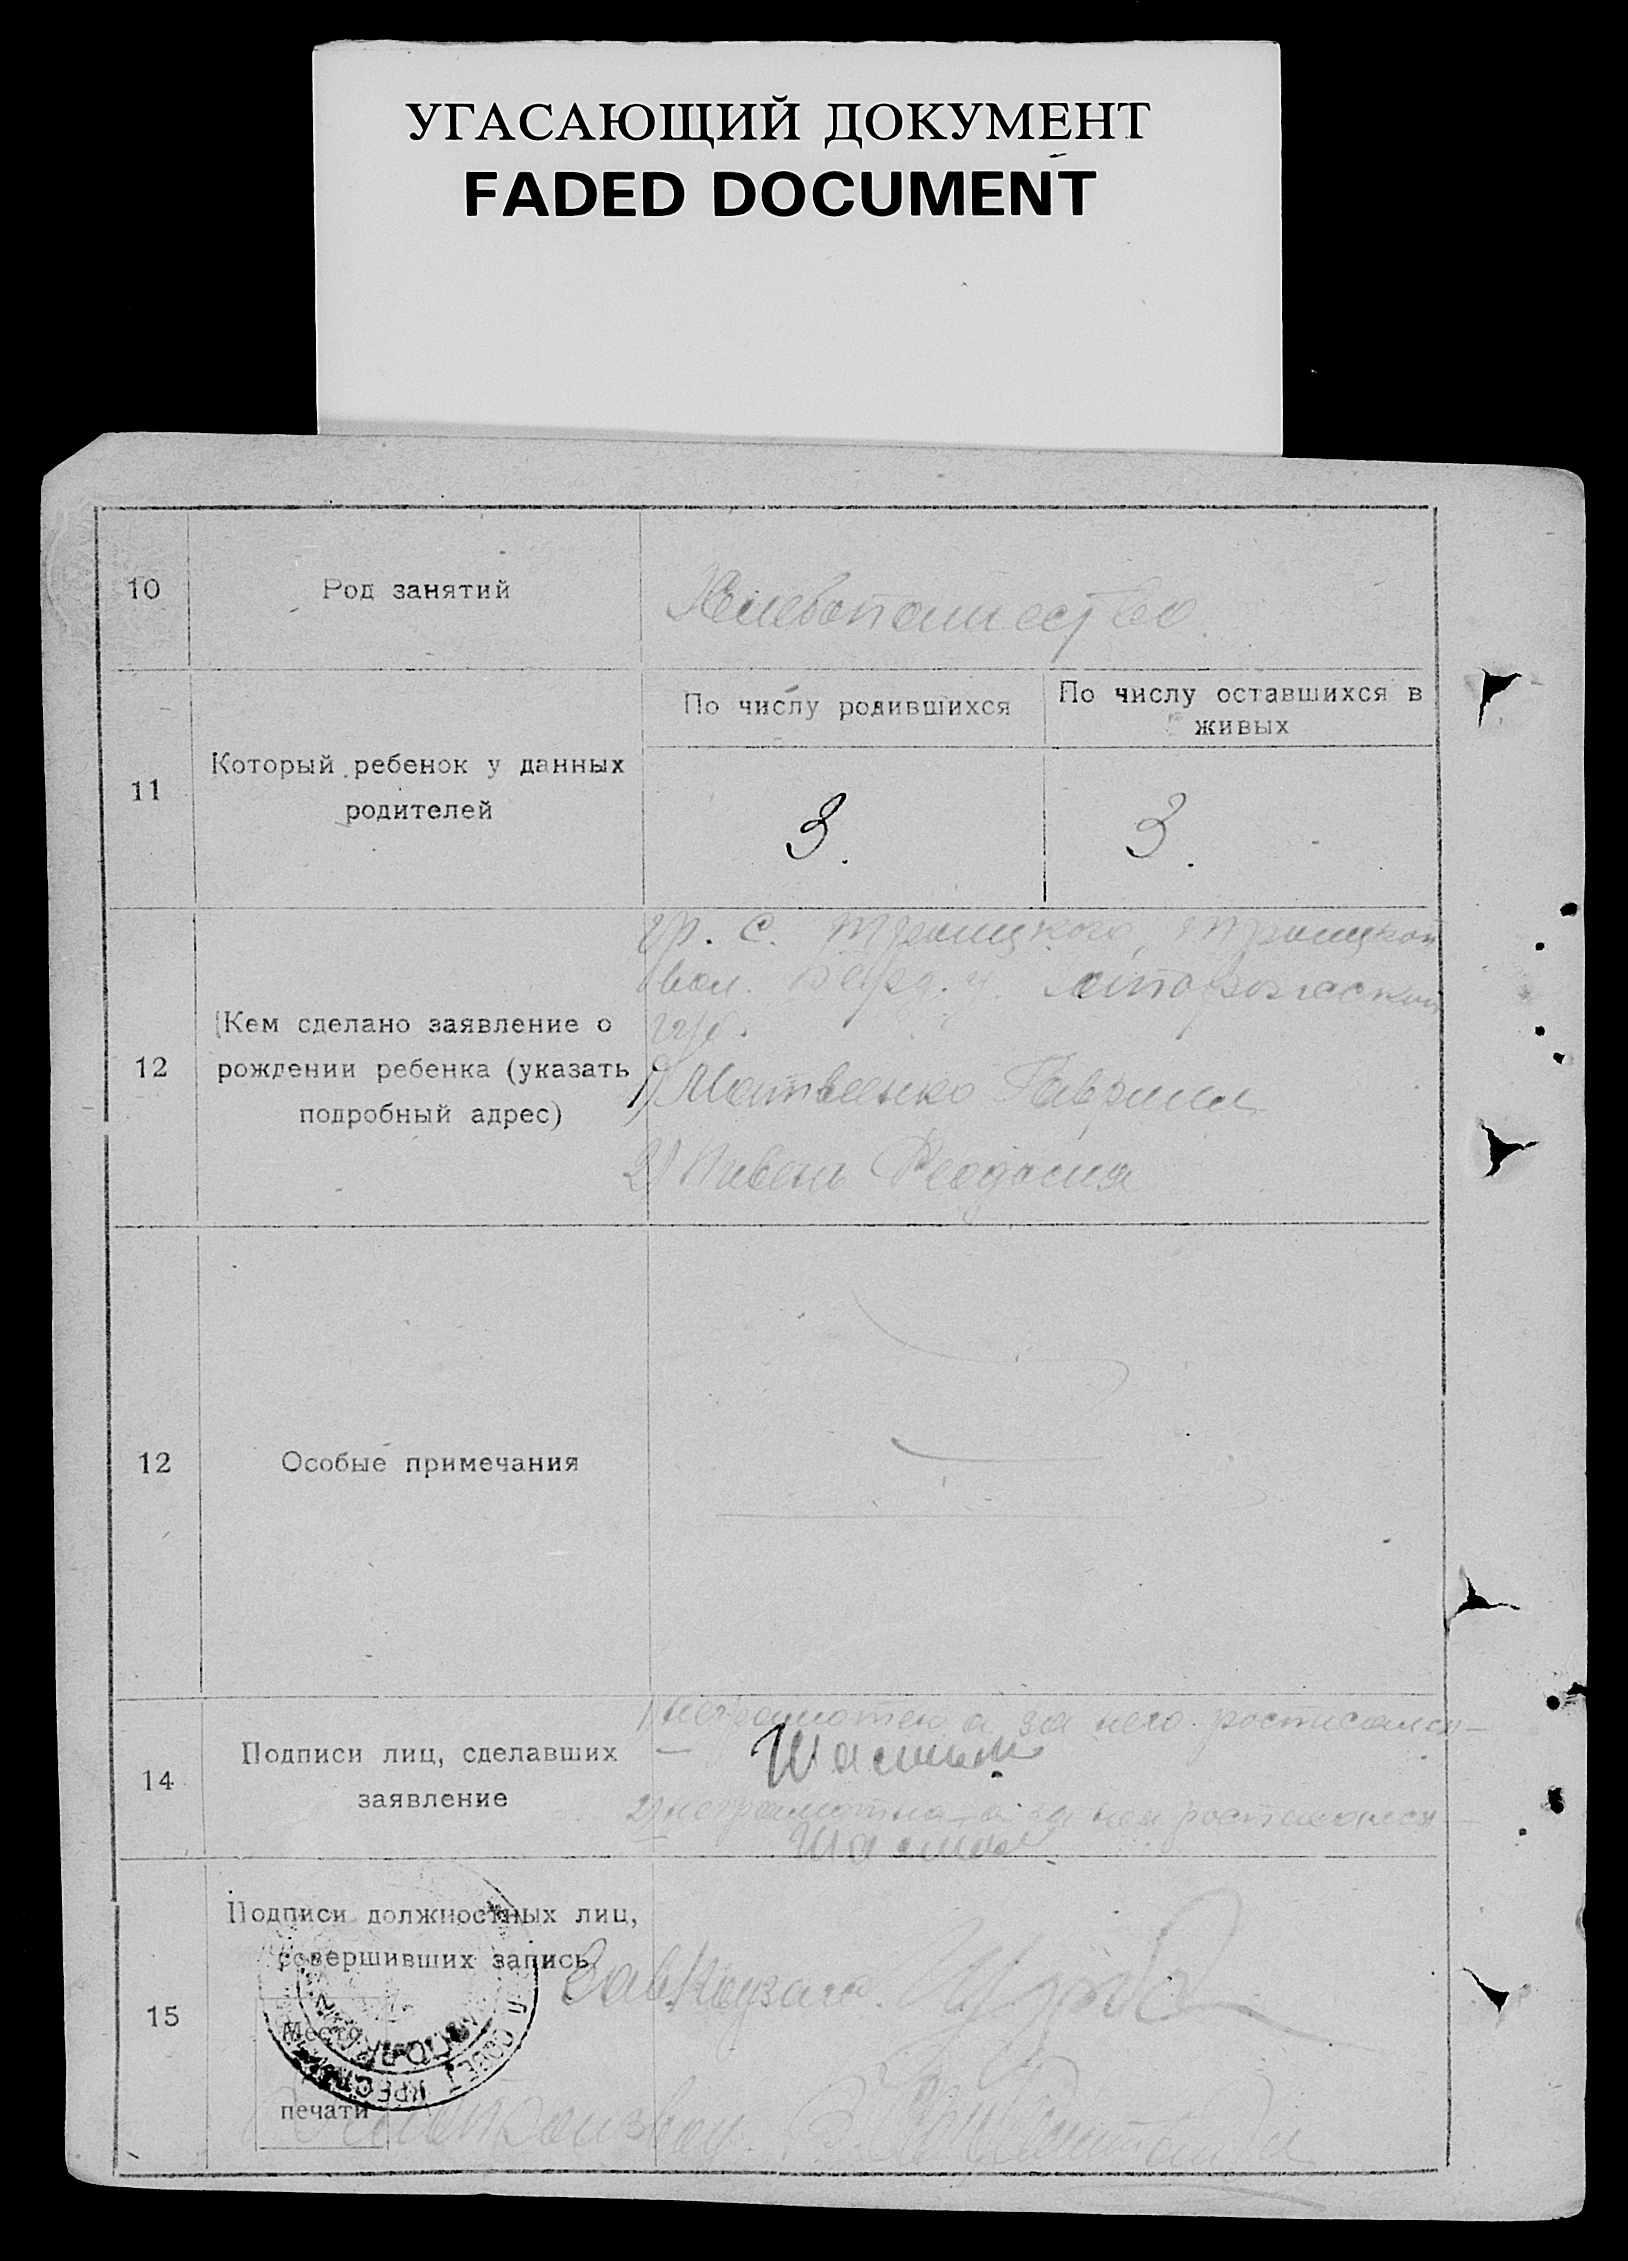 УГАСАЮЩИЙ ДОКУМЕНТ
FADED DOCUMENT
10
Род занятий
Хлебопашество.
11
Который ребенок у данных
родителей
По числу родившихся
По числу оставшихся в
живых
3.
3.
12
Кем сделано заявление о
рождении ребенка (указать
подробный адрес)
гр. с. Троицкого, Троицкой
вол. Берд. у. Запорожской
губ.
1) Матвеенко Гавриил
2) Пивень Феодосия
12
Особые примечания
14
Подписи лиц, сделавших
заявление
1) неграмотен а за него росписался
2) неграмотна а за нея росписался
15
Подписи должностных лиц,
совершивших запись
Место
печати